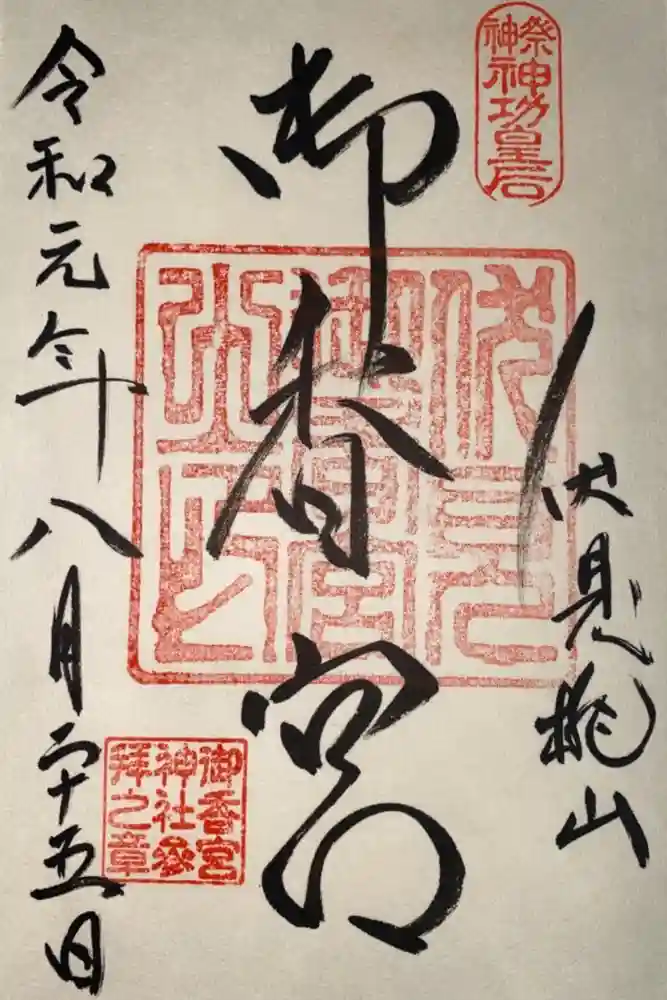 祭神
神功皇后
伏見桃山
御香宮
令和元年八月二十五日
御香宮
神社参
拝之章